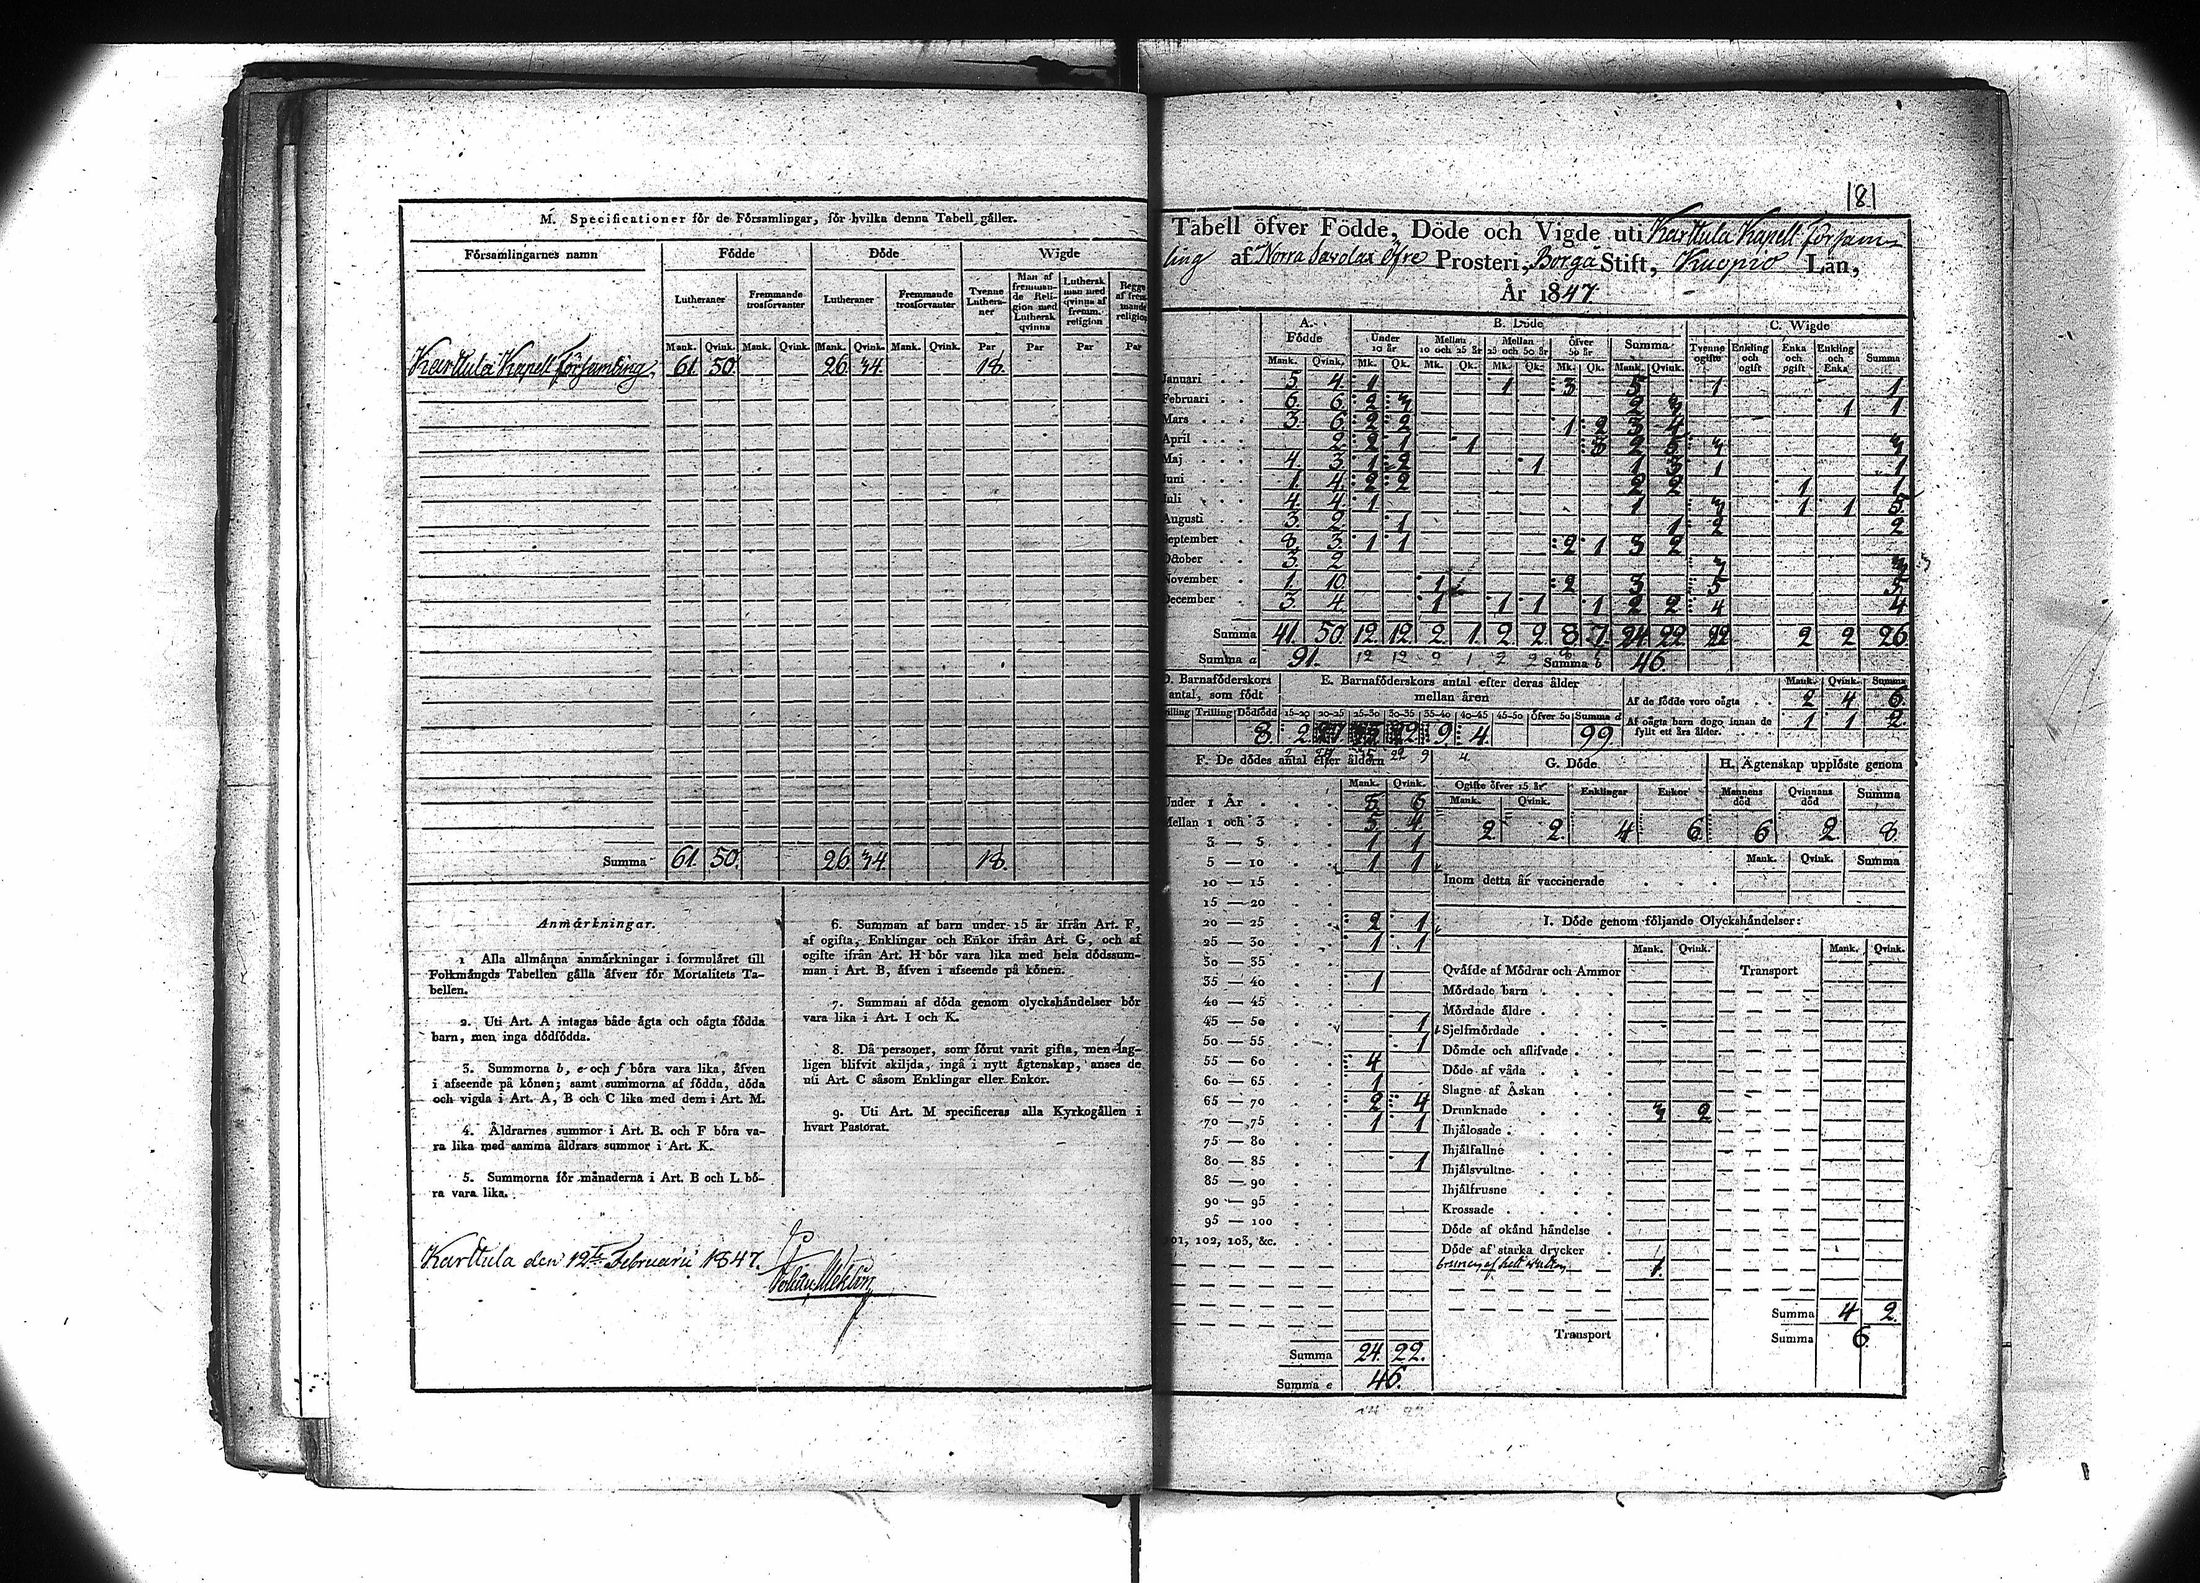 M. Specificationer för de Församlingar, för hvilka denna Tabell gäller.
Församlingarnes namn Födde Döde Wigde
Lutheraner Fremmande trosförvanter Lutheraner Fremmande trosförvanter Tvenne Lutheraner Man af fremmande Religion med Luthersk qvinna Luthersk man med qvinna af fremm. religion Begge af fremmande religion
Mank. Qvink. Mank. Qvink. Mank. Qvink. Mank. Qvink. Par Par Par Par
Karttula Kapell Församling 61 50 26 34 18
Summa 61 50 26 34 18
Anmärkningar.
1 Alla allmänna anmärkningar i formuläret till
Folkmängds Tabellen gälla äfven för Mortalitets Ta-
bellen.
2. Uti Art. A intagas både ägta och oägta födda
barn, men inga dödfödda.
3. Summorna b, e och f böra vara lika, äfven
i afseende på könen; samt summorna af födda, döda
och vigda i Art. A, B och C lika med dem i Art. M.
4. Åldrarnes summor i Art. B. och F böra va-
ra lika med samma åldrars summor i Art. K.
5. Summorna för månaderna i Art. B och L bö-
ra vara lika.
6. Summan af barn under 15 år ifrån Art. F,
af ogifta, Enklingar och Enkor ifrån Art. G, och af
ogifte ifrån Art. H bör vara lika med hela dödssum-
man i Art. B, äfven i afseende på könen.
7. Summan af döda genom olyckshändelser bör
vara lika i Art. I och K.
8. Då personer, som förut varit gifta, men lag-
ligen blifvit skiljda, ingå i nytt ägtenskap, anses de
uti Art. C såsom Enklingar eller Enkor.
9. Uti Art. M specificeras alla Kyrkogällen i
hvart Pastorat.
Karttula den 12te Februarii 1847.
181
Tabell öfver Födde, Döde och Vigde uti Karttula Kapell Försam-
ling af Norra Savolax Öfre Prosteri, Borgå Stift, Kuopio Län,
År 1847
A. Födde B. Döde C. Wigde
Under 10 år Mellan 10 och 25 år Mellan 25 och 50 år Öfver 50 år Summa Tvenne ogifte Enkling och ogift Enka och ogift Enkling och Enka Summa
Mank. Qvink. Mk. Qk. Mk. Qk. Mk. Qk. Mk. Qk. Mank. Qvink.
Januari 5 4 1 1 3 5 1 1
Februari 6 6 2 3 2 3 1 1
Mars 3 6 2 2 1 2 3 4
April 2 2 1 1 3 2 5 3 3
Maj 4 3 1 2 1 1 3 1 1
Juni 1 4 2 2 2 2 1 1
Juli 4 4 1 1 3 1 1 5
Augusti 3 2 1 1 2 2
September 8 3 1 1 2 1 3 2
October 3 2 3 3
November 1 10 1 2 3 5 5
December 3 4 1 1 1 1 2 2 4 4
Summa 41 50 12 12 2 1 2 2 8 7 24 22 22 2 2 26
Summa a 91. Summa b 46.
D. Barnaföderskors antal, som födt
Trilling Dödfödd
8
E. Barnaföderskors antal efter deras ålder mellan åren
15-20 20-25 25-30 30-35 35-40 40-45 45-50 Öfver 50 Summa d
2 22 9 4 99
Mank. Qvink. Summa
Af de födde voro oägta 2 4 6
Af oägta barn dogo innan de fyllt ett års ålder. 1 1 2
F. De dödes antal efter åldern
Mank. Qvink.
Under 1 År 5 6
Mellan 1 och 3 5 4
3 — 5 1 1
5 — 10 1 1
10 — 15
15 — 20
20 — 25 2 1
25 — 30 1 1
30 — 35
35 — 40 1
40 — 45
45 — 50 1
50 — 55 1
55 — 60 4
60 — 65 1
65 — 70 2 4
70 — 75 1 1
75 — 80
80 — 85 1
85 — 90
90 — 95
95 — 100
101, 102, 103, &c.
Summa 24 22
Summa e 46.
G. Döde
Ogifte öfver 15 år Enklingar Enkor
Mank. Qvink.
2 2 4 6
H. Ägtenskap upplöste genom
Mannens död Qvinnans död Summa
6 2 8
Mank. Qvink. Summa
Inom detta år vaccinerade
I. Döde genom följande Olyckshändelser:
Mank. Qvink. Mank. Qvink.
Qväfde af Mödrar och Ammor Transport
Mördade barn
Mördade äldre
Sjelfmördade
Dömde och aflifvade
Döde af våda
Slagne af Åskan
Drunknade 3 2
Ihjälosade
Ihjälfallne
Ihjälsvultne
Ihjälfrusne
Krossade
Döde af okänd händelse
Döde af starka drycker
1
Summa 4 2
Transport Summa 6